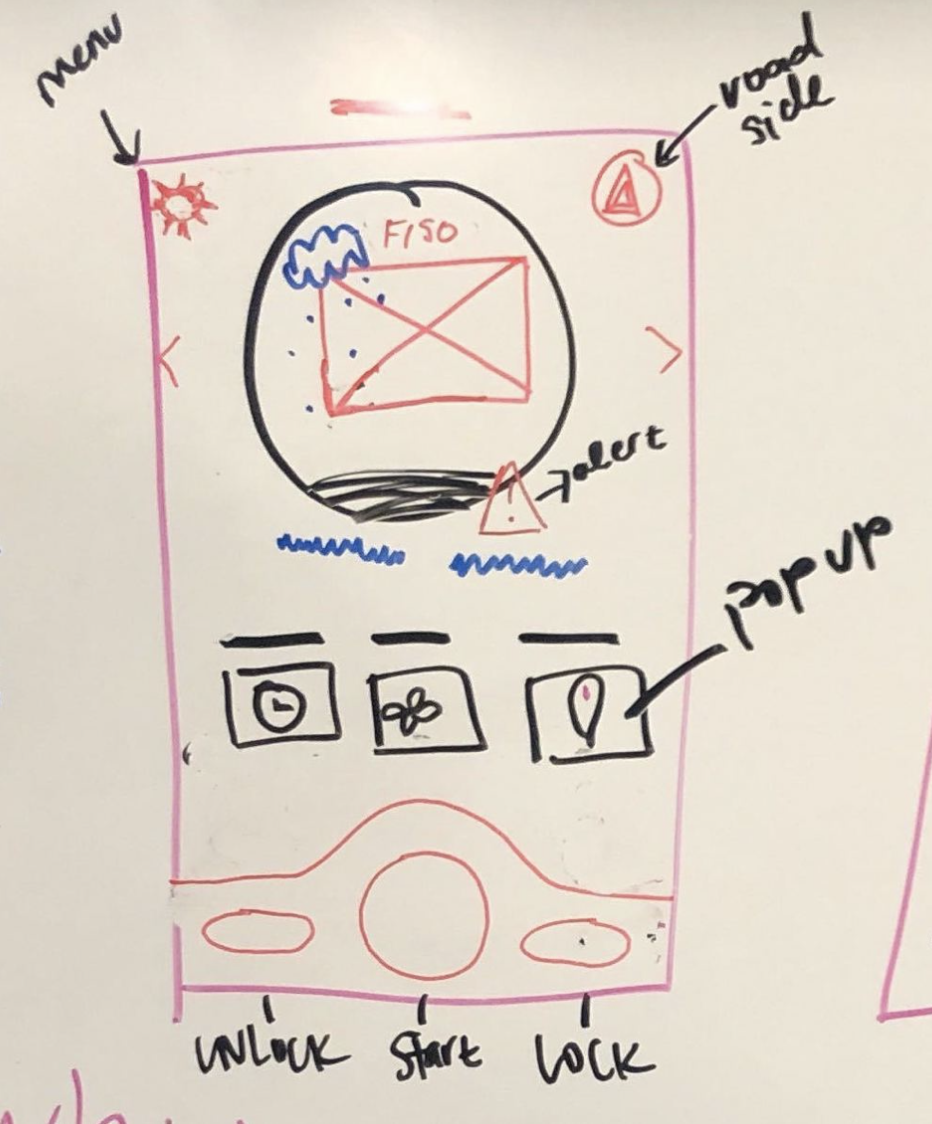 menu
road
side
F150
alert
pop up
UNLOCK
Start
LOCK